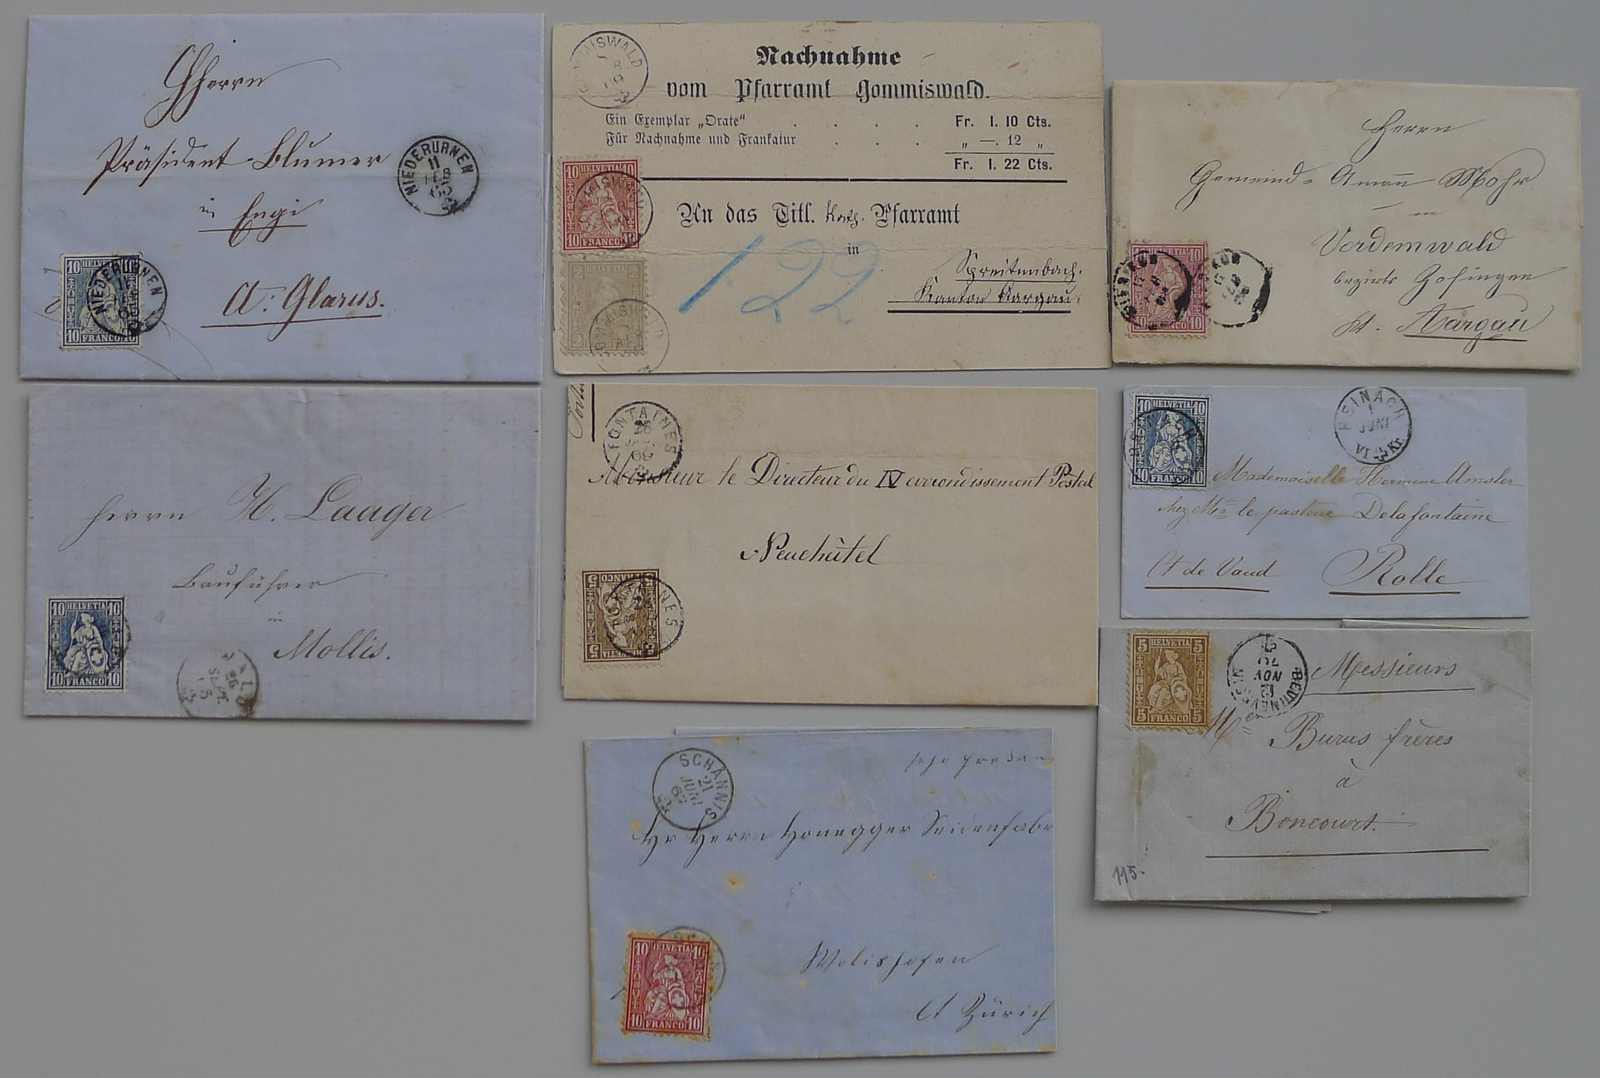 Herrn
Präsident Blumer
in Engi
Ct. Glarus.
NIEDERURNEN
11
NIEDERURNEN
10 HELVETIA 10
10 FRANCO 10
GOMMISWALD
Nachnahme
vom Pfarramt Gommiswald.
Ein Exemplar „Orate“ . . . . Fr. 1. 10 Cts.
Für Nachnahme und Frankatur . . . „ —. 12 „
Fr. 1. 22 Cts.
An das Titl. Kath. Pfarramt
in
Spreitenbach.
Kanton Aargau.
122
10 HELVETIA 10
10 FRANCO 10
Herrn
Gemeind-Amañ Mohr
in
Vordemwald
bezirks Zofingen
Ct. Aargau
10 10
Herrn H. Laager
Bauführer
in
Mollis.
10 HELVETIA 10
10 FRANCO 10
26
SEPT
FONTAINES
Monsieur le Directeur du IV arrondissement Postal
Neuchâtel
FONTAINES
5 FRANCO 5
5 HELVETIA 5
10 HELVETIA 10
10 FRANCO 10
REINACH
1
JUNI
Mademoiselle Hermine Amsler
chez Mr. le pasteur Delafontaine
Ct de Vaud Rolle
5 HELVETIA 5
5 FRANCO 5
12
NOV
70
Messieurs
M Burus frères
à
Boncourt.
115.
SCHÄNNIS
21
JUNI
Herrn Honegger Seidenfabr
Wolishofen
Ct Zürich
10 HELVETIA 10
10 FRANCO 10